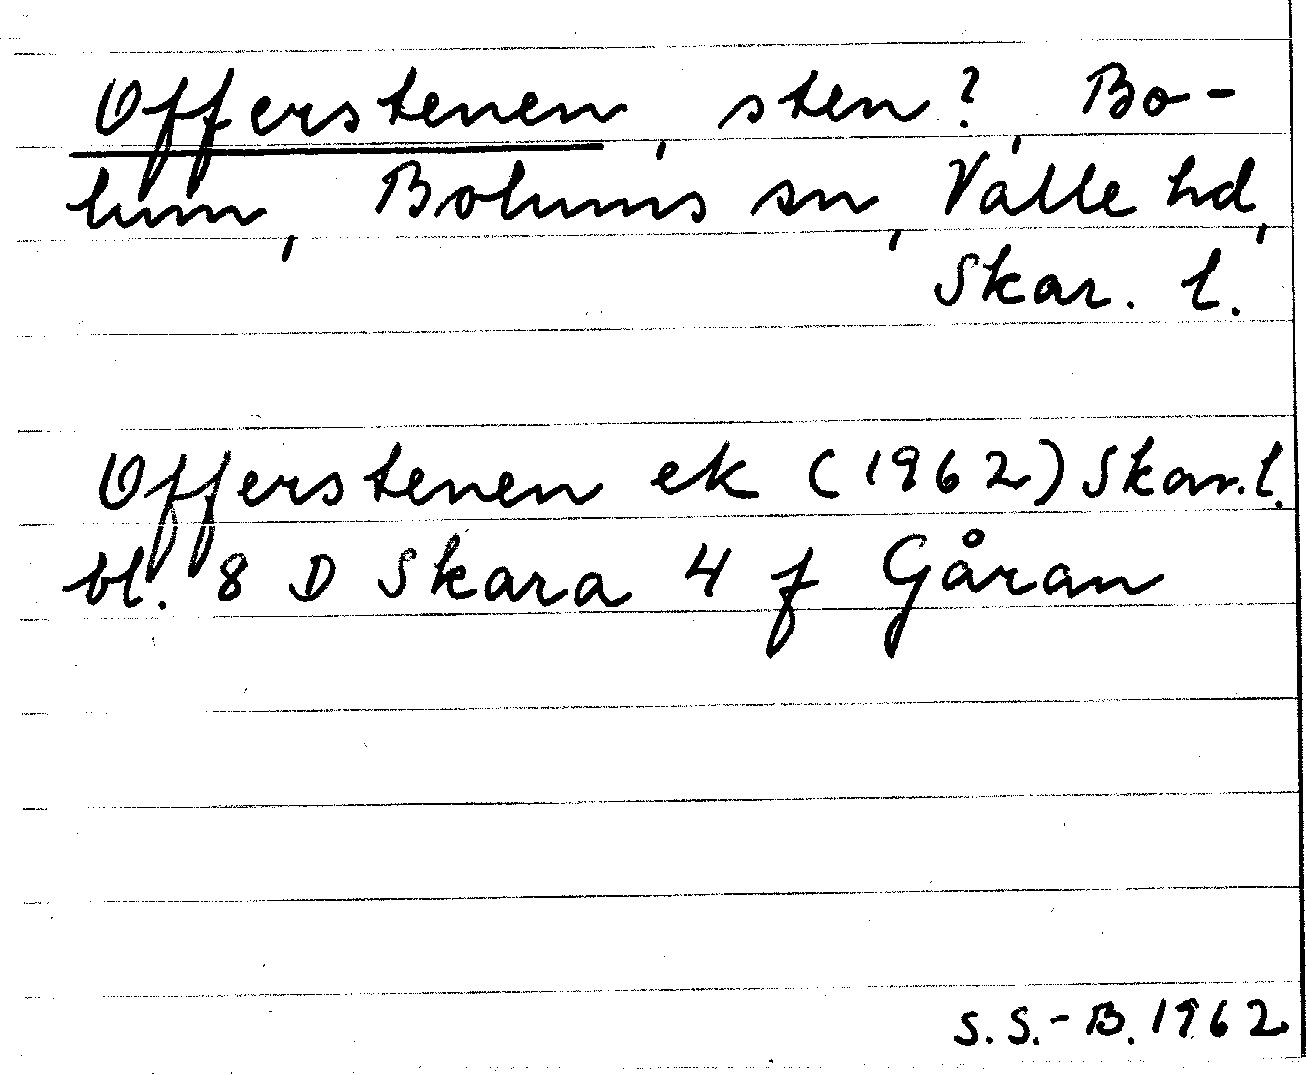 Offerstenen, sten?, Bo-
lum, Bolums sn, Valle hd,
Skar. l.
Offerstenen ek (1962) Skar. l.
bl. 8 D Skara 4 f Gåran
S. S.-B. 1962